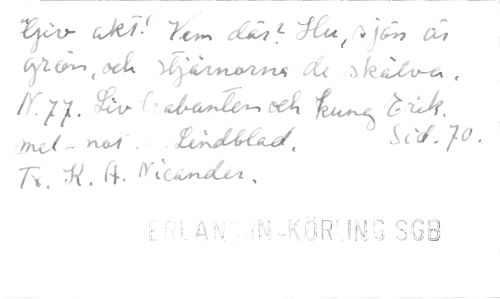 Giv akt! Vem där? Hu, sjön är
grön, och stjärnorna de skälva.
N. 77. Livdrabanten och kung Erik.
mel-not. Lindblad. Sid. 70.
Tr. K. A. Nicander.
ERLANDSON-KÖRLING SGB